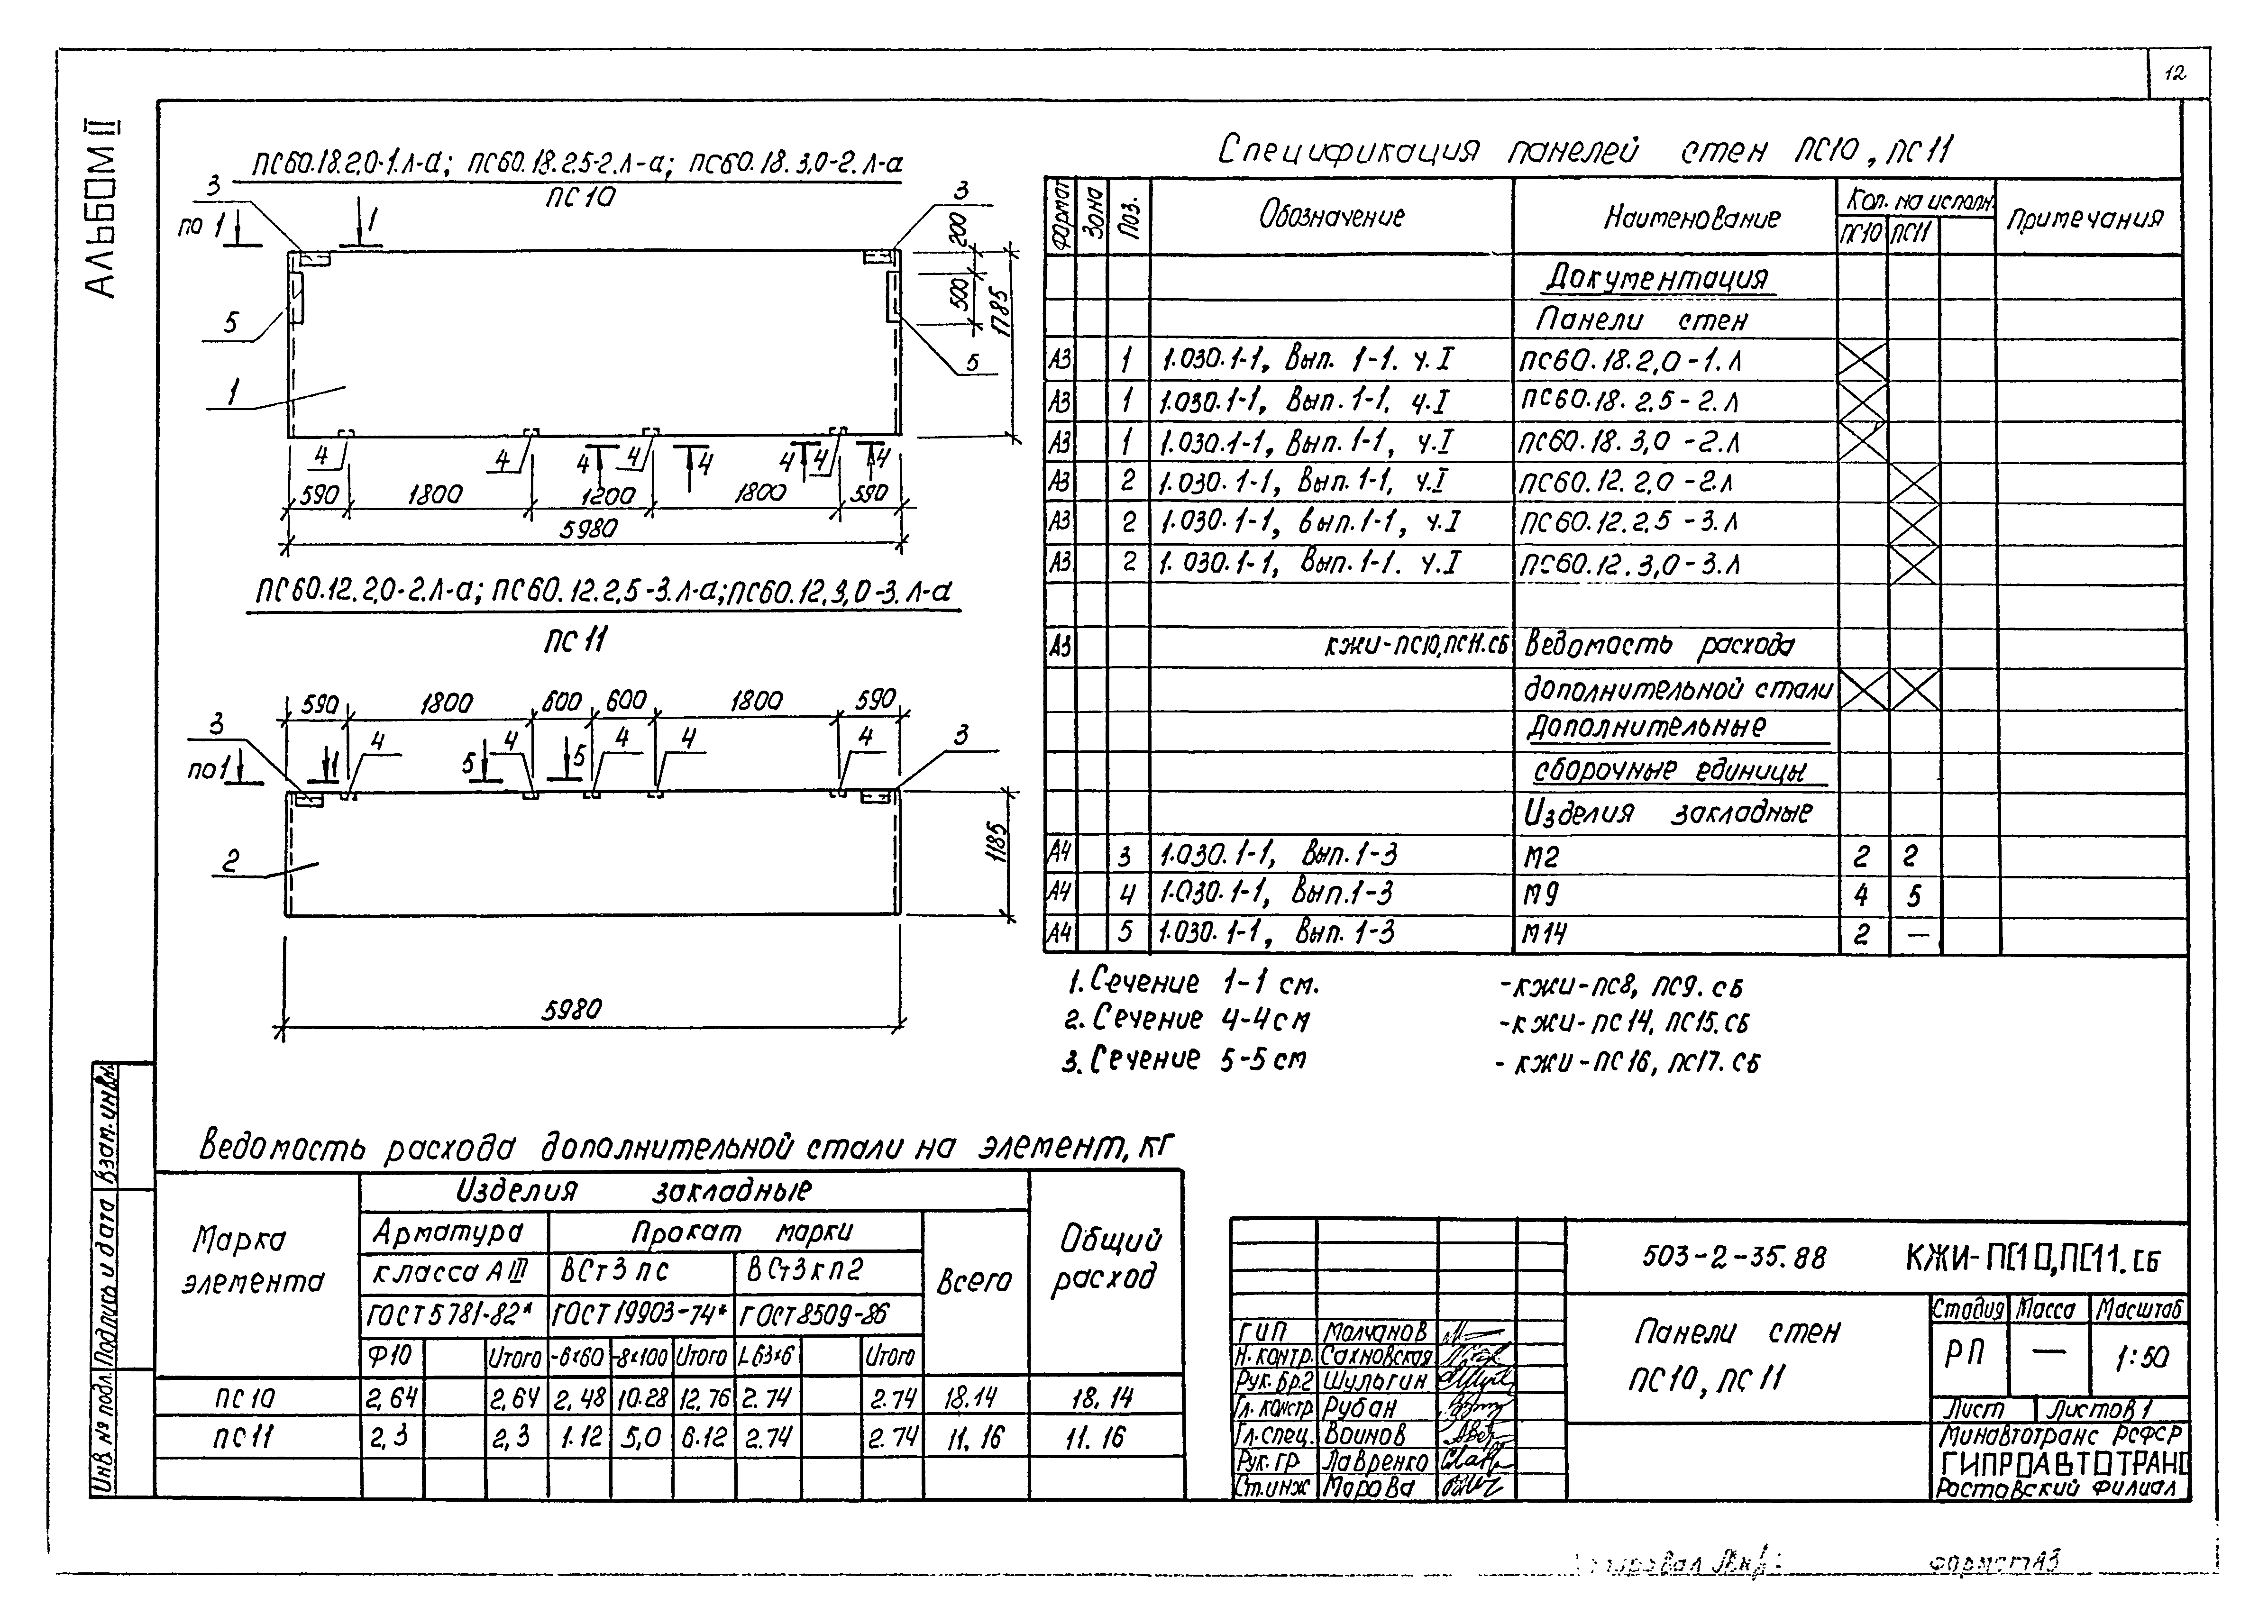 12
АЛЬБОМ II
ПС60.18.2,0-1.Л-а; ПС60.18.2.5-2.Л-а; ПС60.18.3,0-2.Л-а
ПС10
3
3
по 1
1
200
500
1785
5
5
1
4 4 4 4 4 4 4 4
590 1800 1200 1800 590
5980
ПС60.12.2,0-2.Л-а; ПС60.12.2,5-3.Л-а; ПС60.12.3,0-3.Л-а
ПС11
590 1800 600 600 1800 590
3 4 4 4 4 4 3
по 1 1 5 5
2
1185
5980
Спецификация панелей стен ПС10, ПС11
Формат Зона Поз. Обозначение Наименование Кол. на исполн. Примечания
ПС10 ПС11
Документация
Панели стен
А3 1 1.030.1-1, Вып. 1-1. ч.I ПС60.18.2,0-1.Л
А3 1 1.030.1-1, Вып. 1-1, ч.I ПС60.18.2.5-2.Л
А3 1 1.030.1-1, Вып. 1-1, ч.I ПС60.18.3,0-2.Л
А3 2 1.030.1-1, Вып. 1-1, ч.I ПС60.12.2,0-2.Л
А3 2 1.030.1-1, Вып. 1-1, ч.I ПС60.12.2,5-3.Л
А3 2 1.030.1-1, Вып. 1-1. ч.I ПС60.12.3,0-3.Л
А3 КЖИ-ПС10,ПС11.СБ Ведомость расхода
дополнительной стали
Дополнительные
сборочные единицы
Изделия закладные
А4 3 1.030.1-1, Вып. 1-3 М2 2 2
А4 4 1.030.1-1, Вып. 1-3 М9 4 5
А4 5 1.030.1-1, Вып. 1-3 М14 2 —
1. Сечение 1-1 см. -КЖИ-ПС8, ПС9.СБ
2. Сечение 4-4 см -КЖИ-ПС14, ПС15.СБ
3. Сечение 5-5 см - КЖИ-ПС16, ПС17.СБ
Ведомость расхода дополнительной стали на элемент, кг
Марка элемента
Изделия закладные
Общий расход
Арматура Прокат марки Всего
класса АIII ВСт3пс ВСт3кп2
ГОСТ 5781-82* ГОСТ 19903-74* ГОСТ 8509-86
Ф10 Итого -6х60 -8х100 Итого L63х6 Итого
ПС10 2,64 2,64 2,48 10.28 12,76 2.74 2.74 18.14 18.14
ПС11 2,3 2,3 1.12 5,0 6.12 2.74 2.74 11.16 11.16
Инв. № подл. Подпись и дата Взам. инв. №
503-2-35.88 КЖИ-ПС10,ПС11.СБ
ГИП Молчанов
Н.контр. Сахновская
Рук.бр.2 Шульгин
Гл.констр Рубан
Гл.спец. Воинов
Рук.гр. Лавренко
Ст.инж Марова
Панели стен
ПС10, ПС11
Стадия Масса Масштаб
РП — 1:50
Лист Листов 1
Минавтотранс РСФСР
ГИПРОАВТОТРАНС
Ростовский филиал
Формат А3